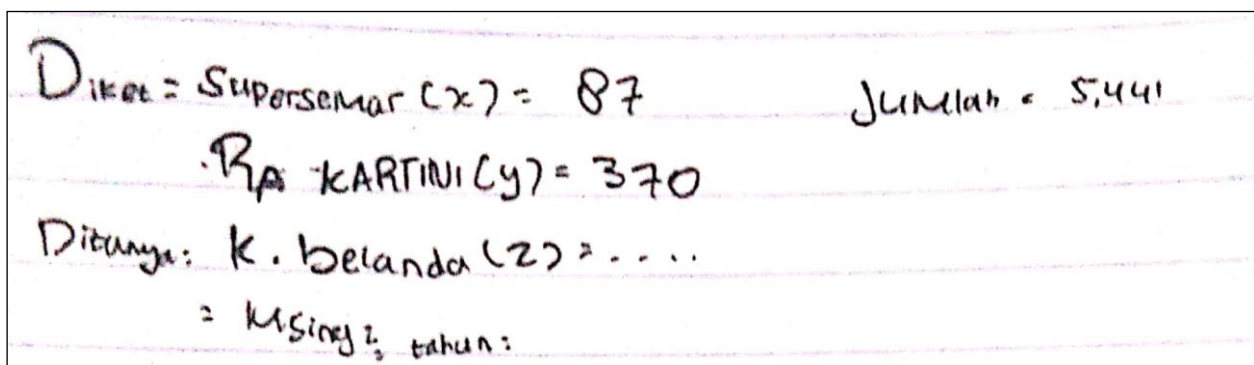 Diket = Supersemar (x) = 87 Jumlah = 5.441
RA KARTINI (y) = 370
Ditanya: K. belanda (z) = ....
= Msing2 tahun: